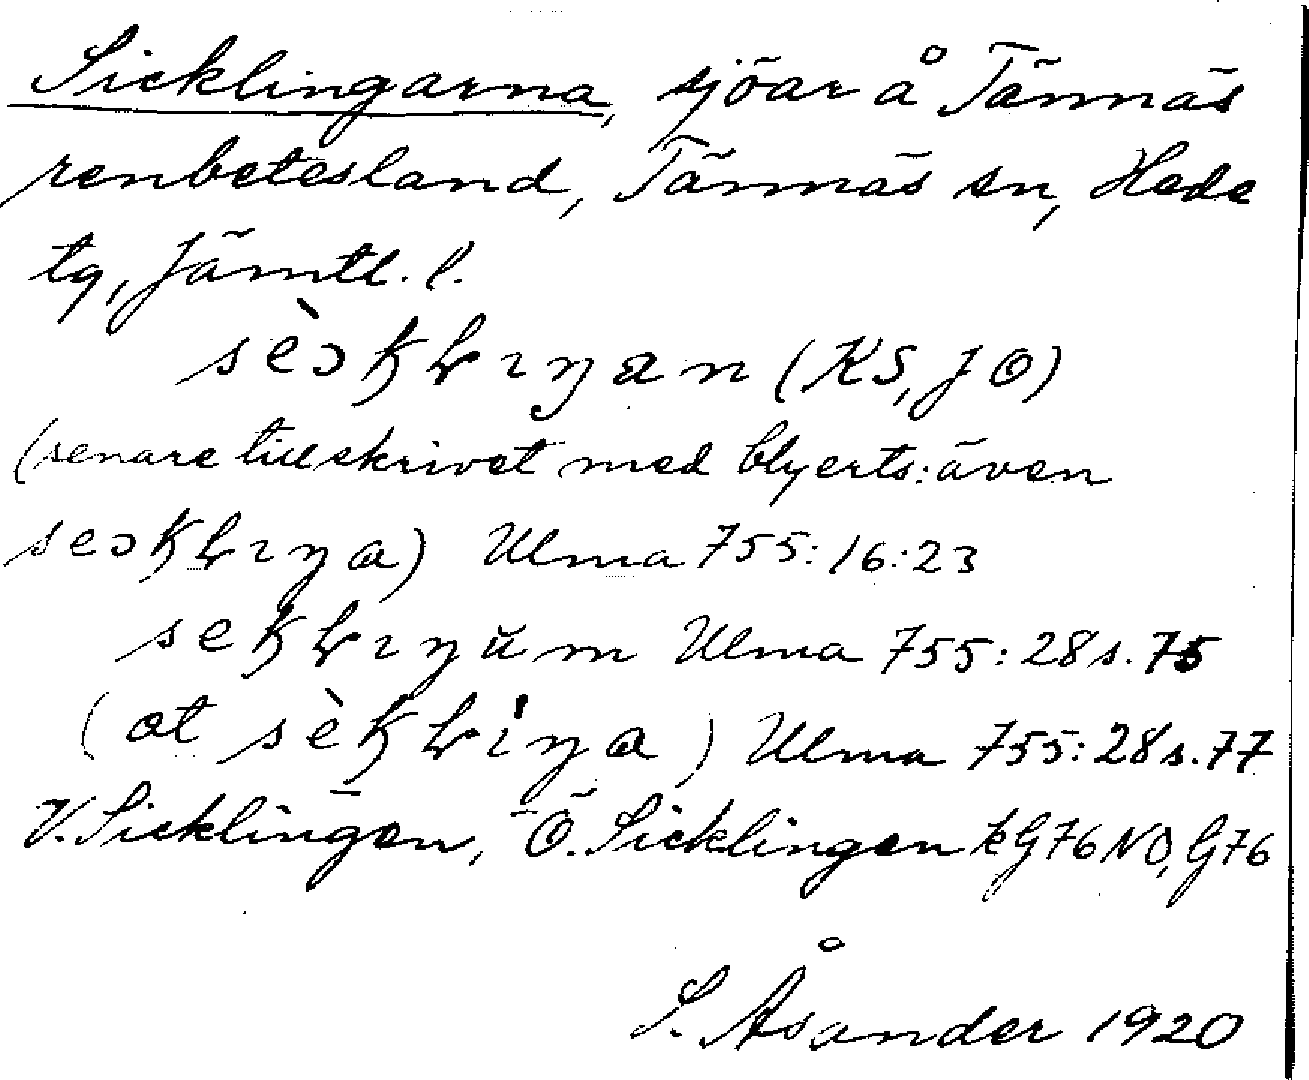 Sicklingarna, sjöar å Tännäs
renbetesland, Tännäs sn, Hede
tg, Jämtl. l.
(KS, JO)
(senare tillskrivet med blyerts: även
Ulma 755:16:23
Ulma 755:28 s. 75
Ulma 755:28 s. 77
V. Sicklingen, Ö. Sicklingen k G76 NO, G76
S. Åsander 1920